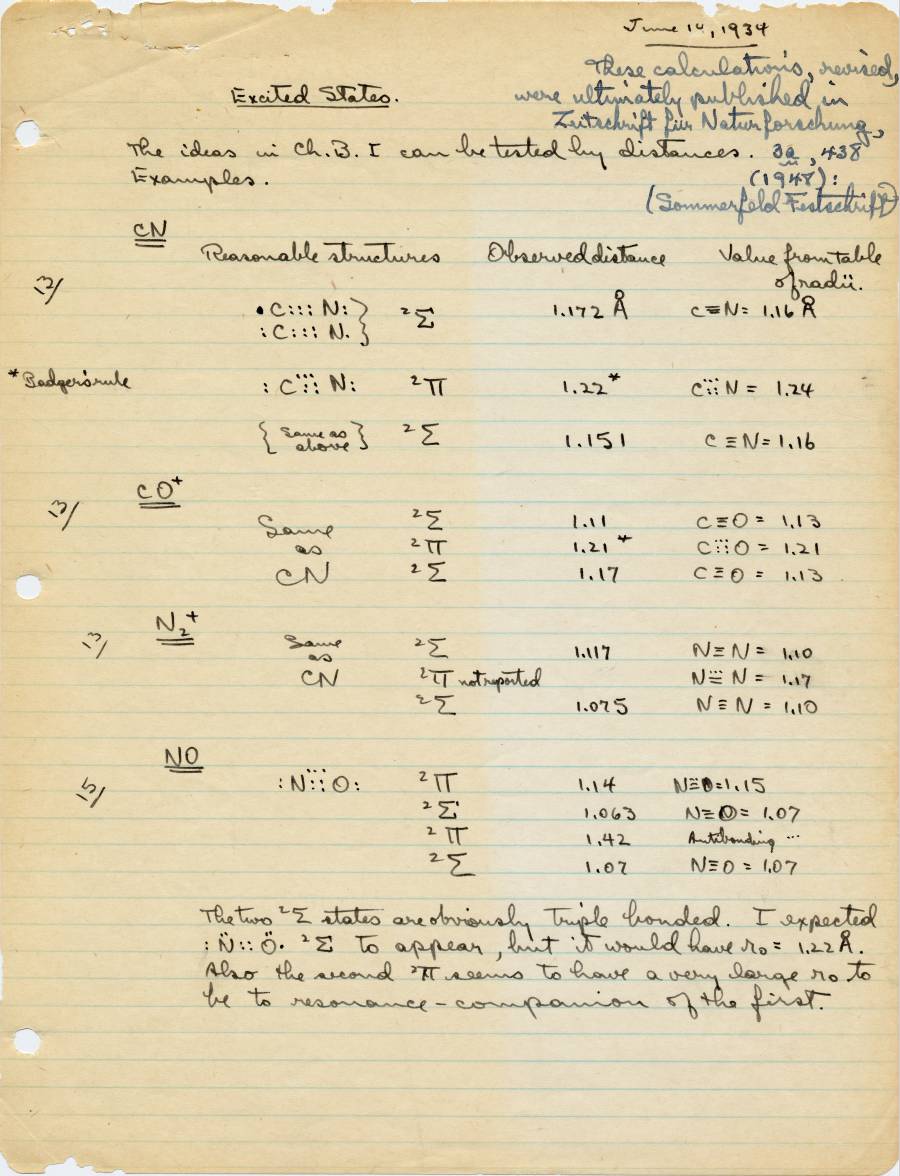 June 14, 1934
These calculations, revised,
were ultimately published in
Zeitschrift für Naturforschung,
3a, 438
(1948):
(Sommerfeld Festschrift)
Excited States.
The ideas in Ch.B. I can be tested by distances.
Examples.
CN
Reasonable structures Observed distance Value from table
of radii.
13/
•C:::N:} ²Σ 1.172 Å C≡N= 1.16 Å
:C:::N.}
*Badger's rule :C:::N: ²Π 1.22* C:::N = 1.24
{Same as above} ²Σ 1.151 C≡N=1.16
CO⁺
13/
Same ²Σ 1.11 C≡O = 1.13
as ²Π 1.21* C:::O = 1.21
CN ²Σ 1.17 C≡O = 1.13
N₂⁺
13/
Same ²Σ 1.117 N≡N = 1.10
as
CN ²Π not reported N:::N = 1.17
²Σ 1.075 N≡N = 1.10
NO
15/
:N:::O: ²Π 1.14 =1.15
²Σ 1.063 N≡O= 1.07
²Π 1.42 Antibonding ...
²Σ 1.07 N≡O = 1.07
The two ²Σ states are obviously triple bonded. I expected
:N̈::Ö• ²Σ to appear, but it would have r₀ = 1.22 Å.
Also the second ²Π seems to have a very large r₀ to
be to resonance-companion of the first.